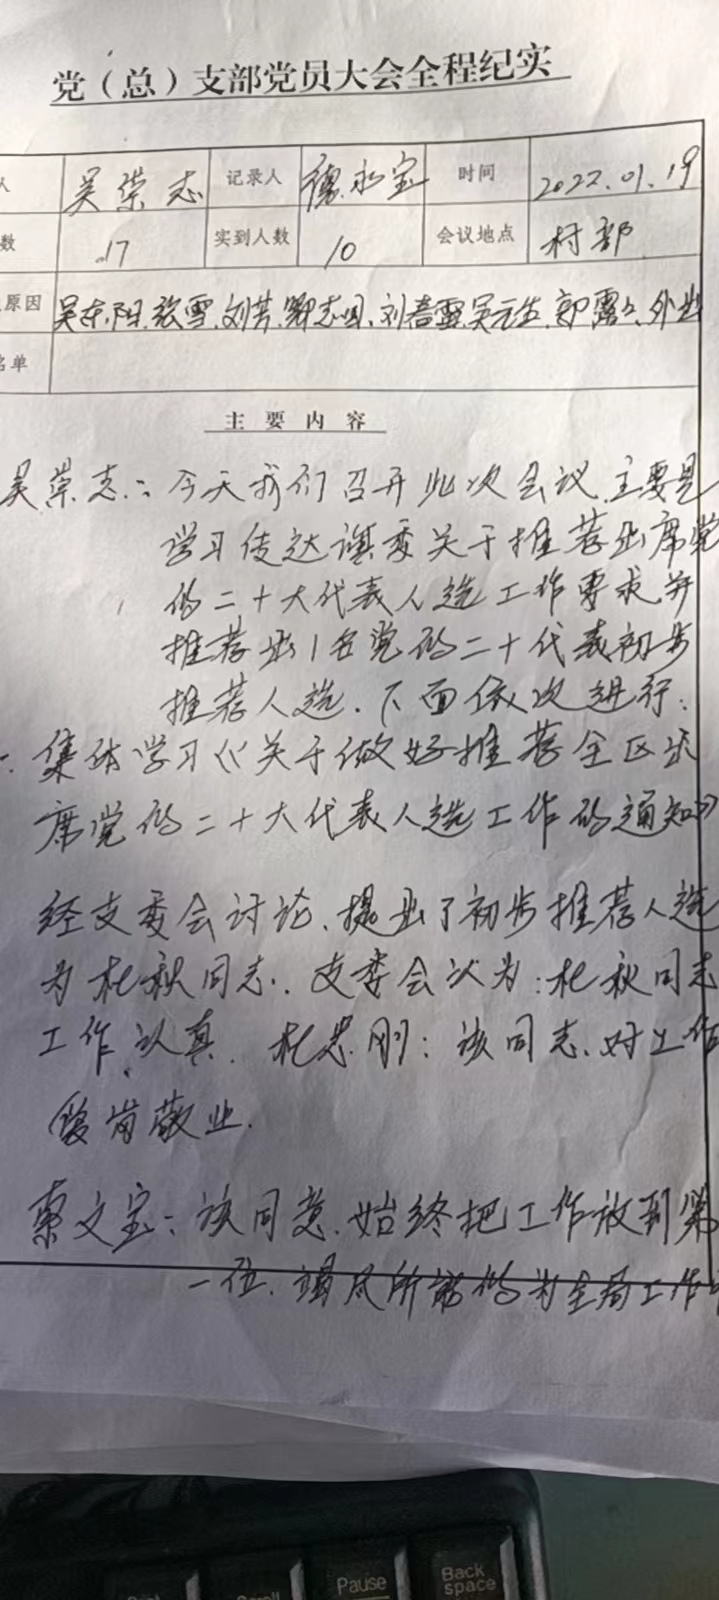 党（总）支部党员大会全程纪实
人 吴崇志 记录人 永宝 时间 2022.01.19
数 17 实到人数 10 会议地点 村部
原因 吴东阳、张雪、刘芳、志国、刘春雪、吴元生、郭露、外出
名单
主要内容
吴崇志：今天我们召开此次会议、主要是
学习传达旗委关于推荐出席党
的二十大代表人选工作要求并
推荐出1名党的二十代表初步
推荐人选、下面依次进行：
集体学习《关于做好推荐全区出
席党的二十大代表人选工作的通知》
经支委会讨论、提出了初步推荐人选
为杜秋同志、支委会认为：杜秋同志
工作认真、杜思刚：该同志、对工作
爱岗敬业.
索文宝：该同志、始终把工作放到第
一位、竭尽所能的为全局工作
Pause
Back
space